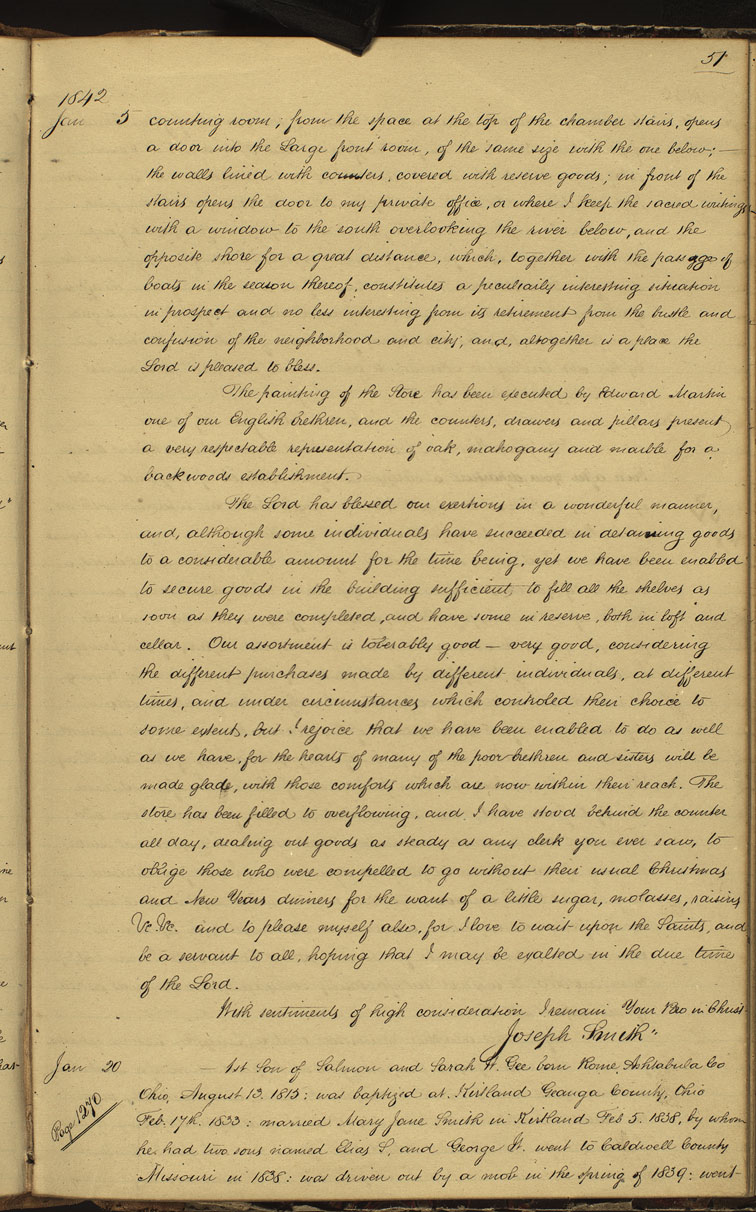 51
1842
Jan 5 counting room; from the space at the top of the chamber stairs, opens
a door into the Large front room, of the same size with the one below;—
the walls lined with counters, covered with reserve goods; in front of the
stairs opens the door to my private office, or where I keep the sacred writings
with a window to the south overlooking the river below, and the
opposite shore for a great distance, which, together with the passage of
boats in the season thereof, constitutes a peculiarily interesting situation
in prospect and no less interesting from its retirement from the bustle and
confusion of the neighborhood and city; and, altogether is a place the
Lord is pleased to bless.
The painting of the Store has been executed by Edward Martin
one of our English brethren, and the counters, drawers and pillars present
a very respectable representation of oak, mahogany and marble for a
backwoods establishment.
The Lord has blessed our exertions in a wonderful manner,
and, although some individuals have succeeded in detaining goods
to a considerable amount for the time being, yet we have been enabled
to secure goods in the building sufficient to fill all the shelves as
soon as they were completed, and have some in reserve, both in loft and
cellar. Our assortment is tolerably good — very good, considering
the different purchases made by different individuals, at different
times, and under circumstances which controled their choice to
some extent, but I rejoice that we have been enabled to do as well
as we have, for the hearts of many of the poor brethren and sisters will be
made glad, with those comforts which are now within their reach. The
store has been filled to overflowing, and I have stood behind the counter
all day, dealing out goods as steady as any clerk you ever saw, to
oblige those who were compelled to go without their usual Christmas
and New Years dinners for the want of a little sugar, molasses, raisins
&c. &c. and to please myself also, for I love to wait upon the Saints, and
be a servant to all, hoping that I may be exalted in the due time
of the Lord.
With sentiments of high consideration I remain Your Bro in Christ
Joseph Smith"
Jan 20 — 1st Son of Salmon and Sarah W. Gee born Rome, Ashtabula Co
Ohio, August 13. 1815: was baptized at Kirtland Geauga County, Ohio
Page 1270
Feb. 17th. 1833: married Mary Jane Smith in Kirtland Feb 5. 1838, by whom
he had two sons named Elias S. and George W. went to Caldwell County
Missouri in 1838: was driven out by a mob in the spring of 1839: went